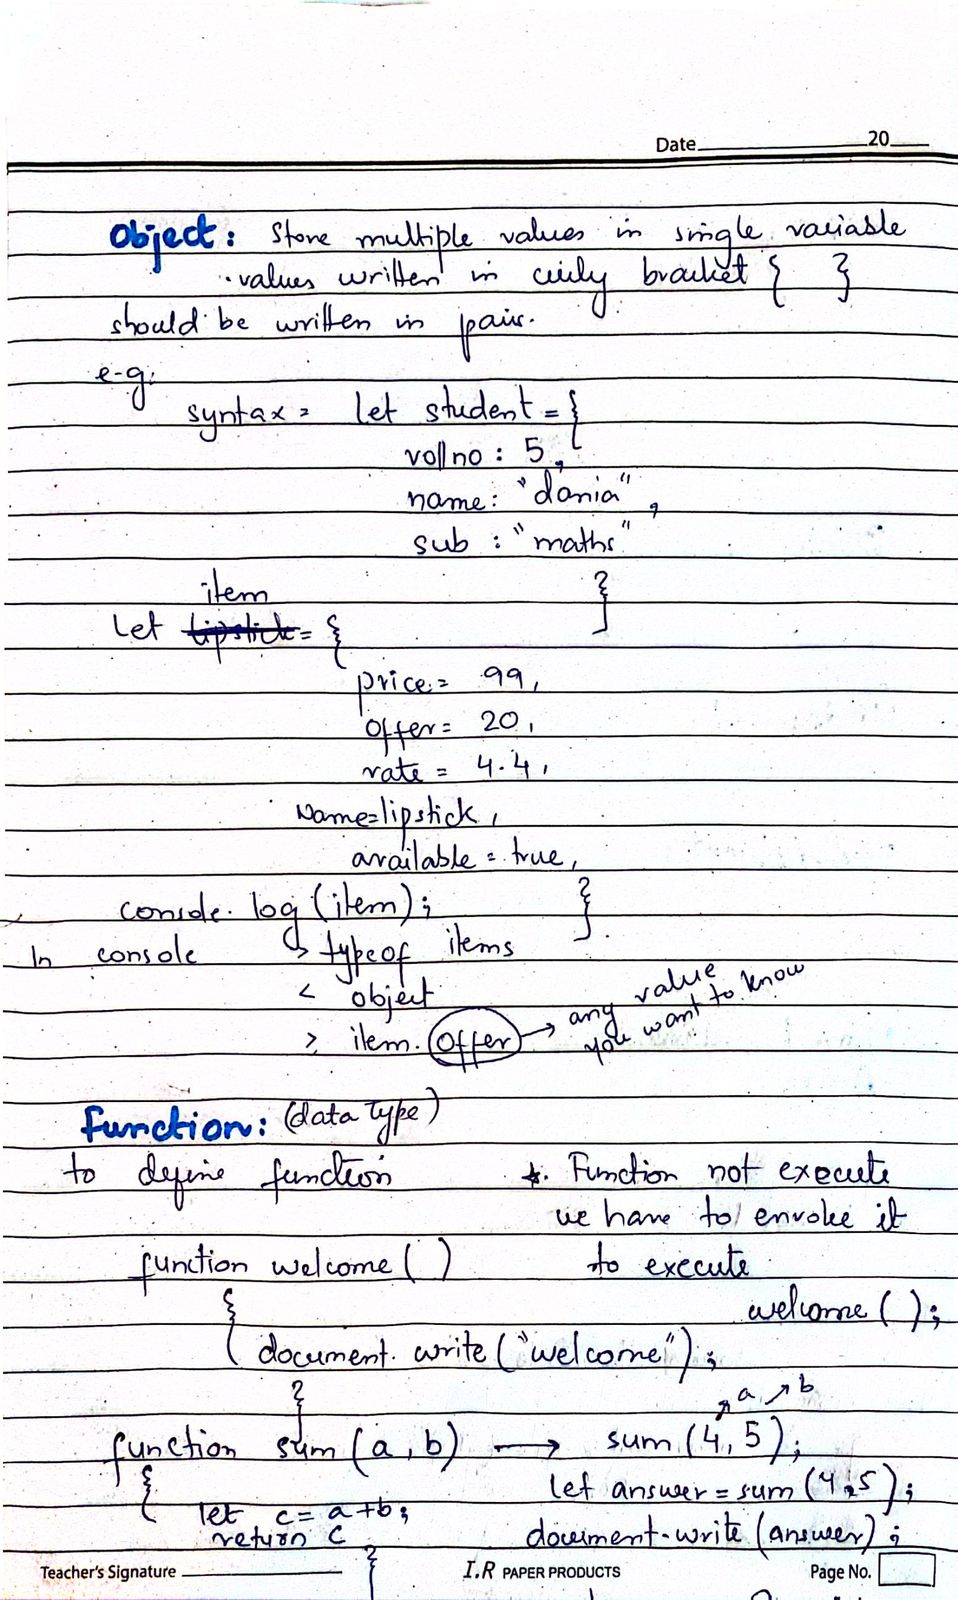 Date 20
Object: Store multiple values in single variable
· values written in curly bracket { }
should be written in pair.
e-g:
syntax = let student = {
rollno : 5,
name: "dania",
sub : "maths"
}
item
let lipstick = {
price = 99,
offer = 20,
rate = 4.4,
Name=lipstick,
available = true,
}
console.log(item);
In console > typeof items
< object
> item.offer → any value
you want to know
Function: (data type)
to define function
function welcome ( )
{
document.write("welcome");
}
*. Function not execute
we have to envoke it
to execute
welcome ( );
function sum (a, b) → sum (4, 5);
a b
{
let c = a + b;
return c
}
let answer = sum (4,5);
document.write (answer);
Teacher's Signature I.R PAPER PRODUCTS Page No.